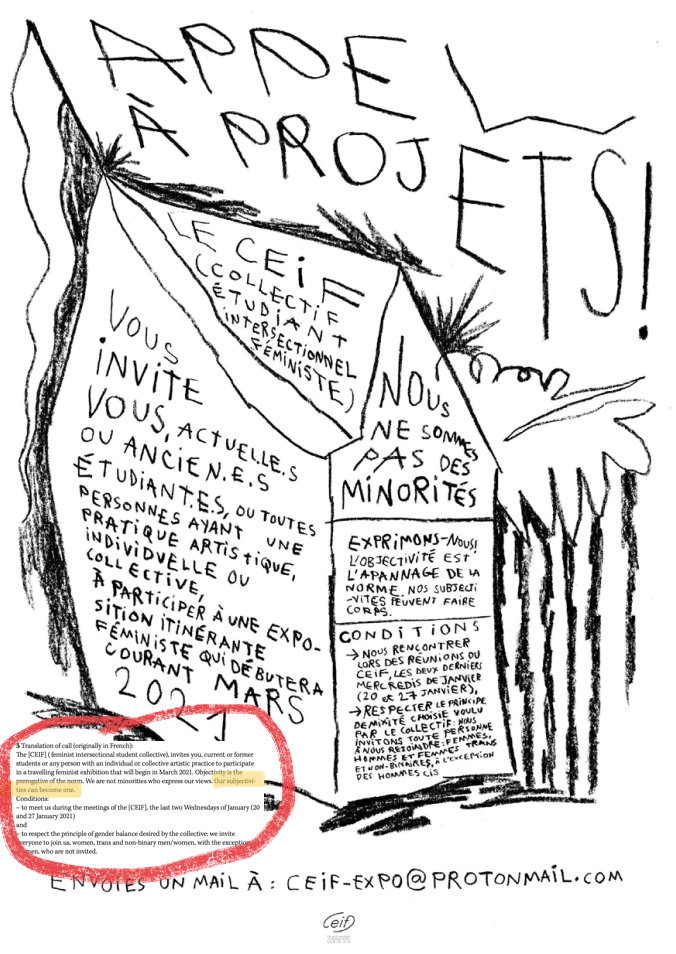 APPEL
À PROJETS!
LE CEiF
(COLLECTIF
ÉTUDIANT
INTERSECTIONNEL
FÉMINISTE)
VOUS
INVITE
VOUS, ACTUELLE.S
OU ANCIEN.E.S
ÉTUDIANT.E.S, OU TOUTES
PERSONNES AYANT UNE
PRATIQUE ARTISTIQUE,
INDIVIDUELLE OU
COLLECTIVE,
À PARTICIPER À UNE EXPO-
SITION ITINÉRANTE
FÉMINISTE QUI DÉBUTERA
COURANT MARS
2021
NOUS
NE SOMMES
PAS DES
MINORITÉS
EXPRIMONS-NOUS!
L'OBJECTIVITÉ EST
L'APANNAGE DE LA
NORME. NOS SUBJECTI
-VITÉS PEUVENT FAIRE
CORPS.
CONDITIONS
→ NOUS RENCONTRER
LORS DES RÉUNIONS DU
CEIF, LES DEUX DERNIERS
MERCREDIS DE JANVIER
(20 et 27 JANVIER),
→ RESPECTER LE PRINCIPE
DE MIXITÉ CHOISIE VOULU
PAR LE COLLECTIF: NOUS
INVITONS TOUTE PERSONNE
À NOUS REJOINDRE: FEMMES,
HOMMES ET FEMMES TRANS
ET NON-BINAIRES, À L'EXCEPTION
DES HOMMES CIS
3 Translation of call (originally in French):
The [CEIF] ( feminist intersectional student collective), invites you, current or former
students or any person with an individual or collective artistic practice to participate
in a travelling feminist exhibition that will begin in March 2021. Objectivity is the
prerogative of the norm. We are not minorities who express our views. Our subjectivi-
ties can become one.
Conditions:
– to meet us during the meetings of the [CEIF], the last two Wednesdays of January (20
and 27 January 2021)
and
– to respect the principle of gender balance desired by the collective: we invite
everyone to join us, women, trans and non-binary men/women, with the exception
men, who are not invited.
ENVOIES UN MAIL À : CEIF-EXPO@PROTONMAIL.COM
Ceif